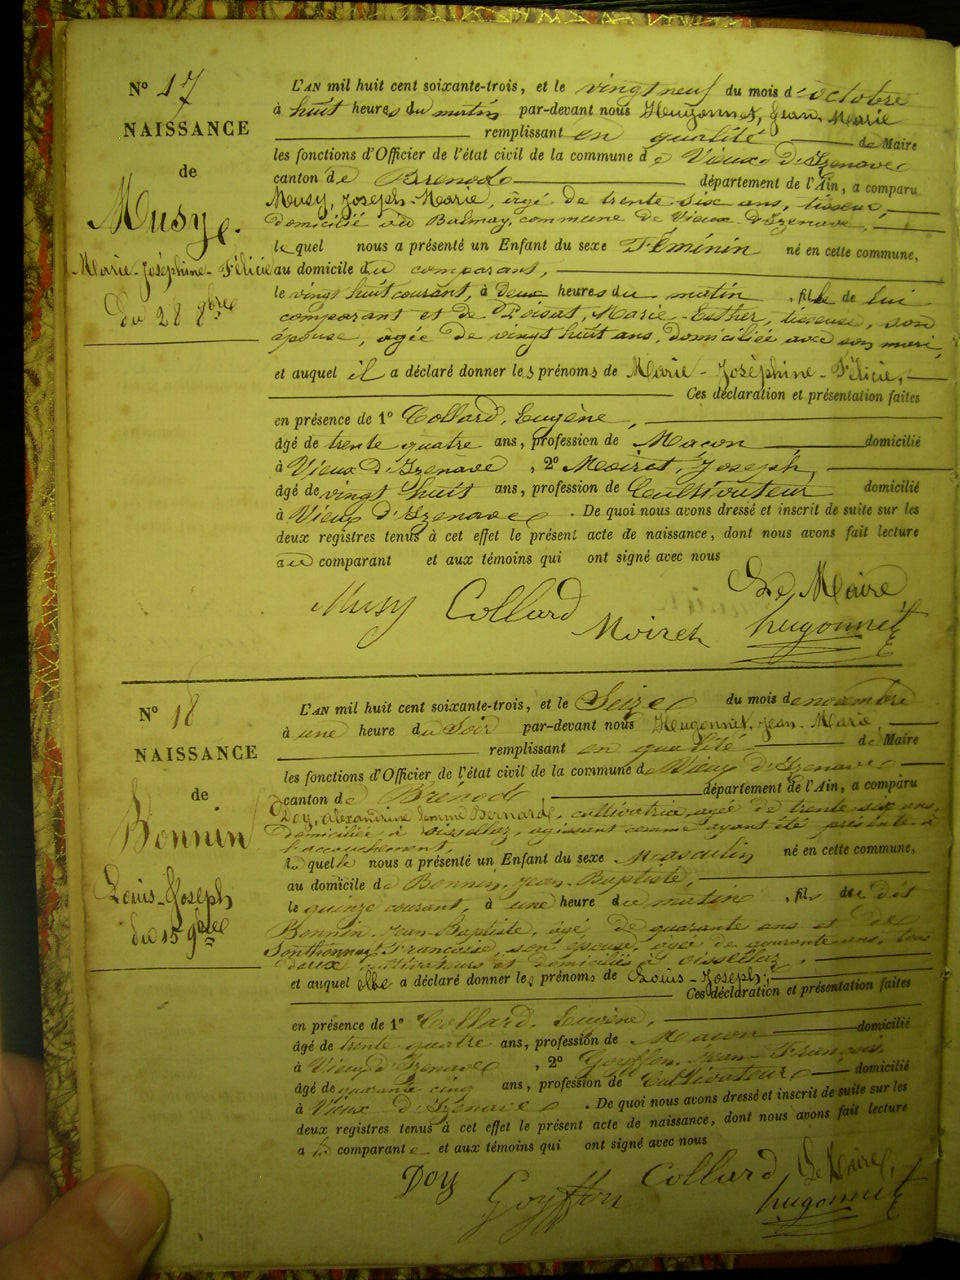 N° 17
NAISSANCE
de
Musy
Marie-Joséphine-Félicie
du 28 8bre
L'AN mil huit cent soixante-trois, et le vingt neuf du mois d'octobre
à huit heures du matin par-devant nous Hugonnet, Jean, Marie
remplissant en qualité de Maire
les fonctions d'Officier de l'état civil de la commune de Vieux d'Izenave
canton de Brénod département de l'Ain, a comparu
Musy, Joseph-Marie, agé de trente six ans, tisseur,
domicilié au Balmay, commune de Vieux d'Izenave,
lequel nous a présenté un Enfant du sexe Féminin né en cette commune,
au domicile du comparant,
le vingt huit courant, à deux heures du matin, fille de lui
comparant et de Poisat, Marie-Esther, tisseuse, son
épouse, agée de vingt huit ans, domiciliée avec son mari,
et auquel il a déclaré donner les prénoms de Marie-Joséphine-Félicie,
Ces déclaration et présentation faites
en présence de 1° Collard, Eugène,
âgé de trente quatre ans, profession de Maçon domicilié
à Vieux d'Izenave, 2° Moiret, Joseph,
âgé de vingt huit ans, profession de Cultivateur domicilié
à Vieux d'Izenave. De quoi nous avons dressé et inscrit de suite sur les
deux registres tenus à cet effet le présent acte de naissance, dont nous avons fait lecture
au comparant et aux témoins qui ont signé avec nous
Le Maire
Musy Collard Moiret hugonnet
N° 18
NAISSANCE
de
Bonnin
Louis-Joseph
du 15 9bre
L'AN mil huit cent soixante-trois, et le Seize du mois de novembre
à une heure du Soir par-devant nous Hugonnet, Jean-Marie,
remplissant en qualité de Maire
les fonctions d'Officier de l'état civil de la commune de Vieux d'Izenave
canton de Brénod département de l'Ain, a comparu
Doy, alexandrine femme Bernard, cultivatrice agée de trente six ans,
domiciliée à oissellaz, agissant comme ayant été présente à
l'accouchement,
laquelle nous a présenté un Enfant du sexe Masculin né en cette commune,
au domicile de Bonnin, Jean-Baptiste,
le quinze courant, à une heure du matin, fils du dit
Bonnin Jean-Baptiste, agé de quarante ans et de
Sonthonnay Françoise, son épouse, agée de quarante ans, tous
deux cultivateurs et domiciliés à oissellaz,
et auquel elle a déclaré donner les prénoms de Louis-Joseph;
Ces déclaration et présentation faites
en présence de 1° Collard, Eugène,
âgé de trente quatre ans, profession de Maçon domicilié
à Vieux d'Izenave, 2° Goyffon, Jean-François,
âgé de quarante cinq ans, profession de Cultivateur domicilié
à Vieux d'Izenave. De quoi nous avons dressé et inscrit de suite sur les
deux registres tenus à cet effet le présent acte de naissance, dont nous avons fait lecture
a la comparante et aux témoins qui ont signé avec nous
Doy Goyffon Collard Le Maire,
hugonnet